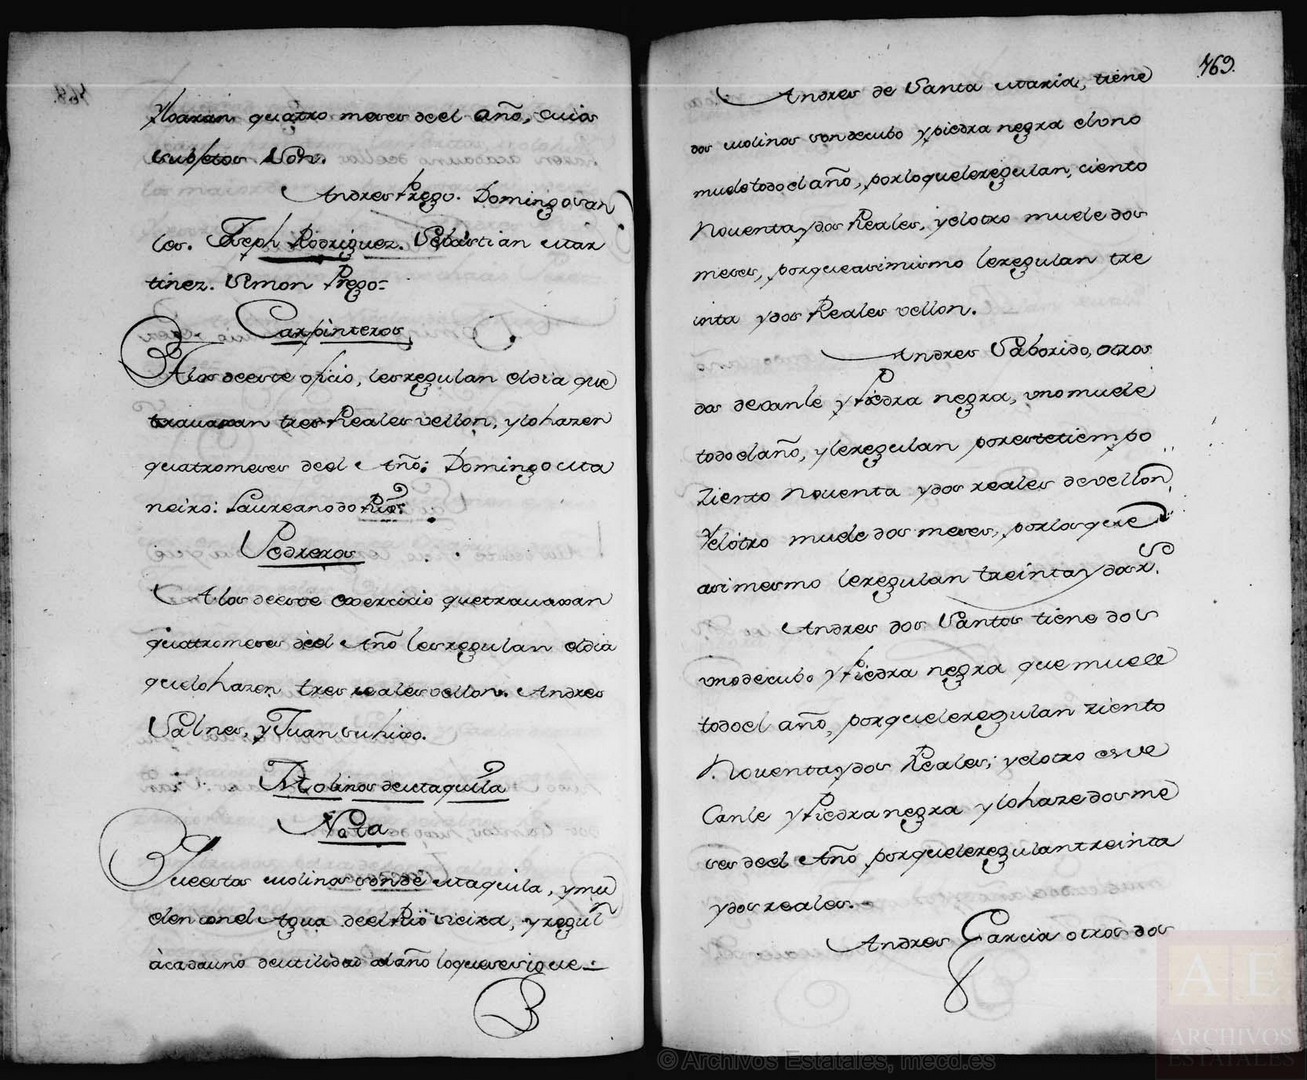 y loarán quatro meses de el año, cuios
subjetos son.
Andres Prego. Domingo San
les. Joseph Rodriguez. Sebastian Mar
tinez. Simon Prego=
Carpinteros,
A los de este oficio, les regulan el dia que
travaxan tres Reales vellon, y lo hazen
quatro meses de el Año: Domingo Ma
neiro: Laureano do Rio.
Pedreros
A los de este exercicio que travaxan
quatro meses de el Año les regulan el dia
que lo hazen tres reales vellon. Andres
Salnes, y Juan
Molinos de Maquila
Nota
Que estos molinos son de Maquila, y mu
elen con el Agua de el Rio Vieira, y regulⁿ
à cada uno de utilidad al año lo que se sigue=
769.
Andres de Santa Maria, tiene
dos molinos son de cubo y piedra negra el uno
muele todo el año, por lo que le regulan, ciento
Noventa y dos Reales, y el otro muele dos
meses, porque asimismo le regulan tre
inta y dos Reales vellon.
Andres Saborido, otros
dos de canle y Piedra negra, uno muele
todo el año, y le regulan por este tiempo
Ziento Noventa y dos reales de vellon,
Y el otro muele dos meses, por los que
asi mesmo le regulan treinta y dos rˢ.
Andres dos Santos tiene dos
uno de cubo y Piedra negra que muele
todo el año, por que le regulan ziento
Noventa y dos Reales; y el otro es de
Canle y Piedra negra y lo haze dos me
ses de el Año por que le regulan treinta
y dos reales.
Andres Garcia otros dos
© Archivos Estatales, mecd.es
A E
ARCHIVOS
ESTATALES